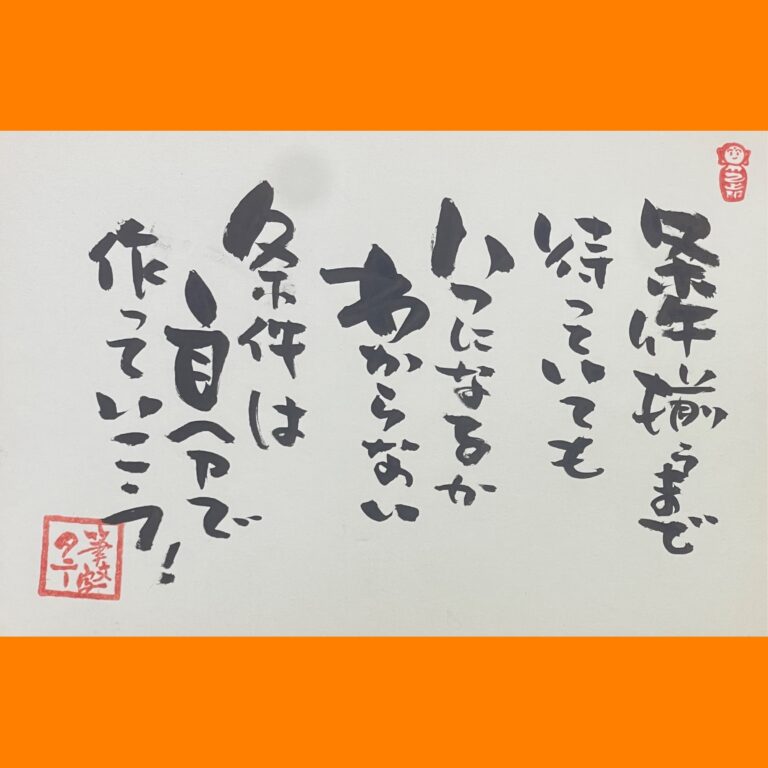 条件揃うまで
待っていても
いつになるか
わからない
条件は
自分で
作っていこう!
筆文字